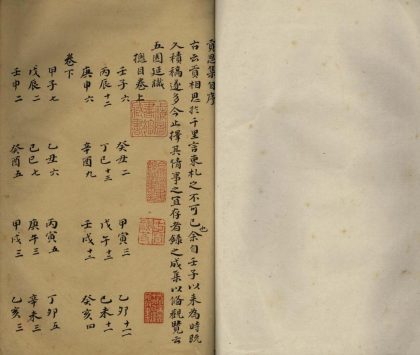 貢思集自序
古云貢相思於千里言柬札之不可已也余自壬子以來為時既
久積稿遂多今止擇其情事之宜存者錄之成集以備觀覽云
五園延識
總目卷上
壬子六 癸丑二 甲寅三 乙卯十一
丙辰十二 丁巳十三 戊午十三 己未十一
庚申六 辛酉九 壬戌十一 癸亥四
卷下
甲子七 乙丑六 丙寅五 丁卯五
戊辰二 己巳七 庚午三 辛未三
壬申二 癸酉五 甲戌三 乙亥三